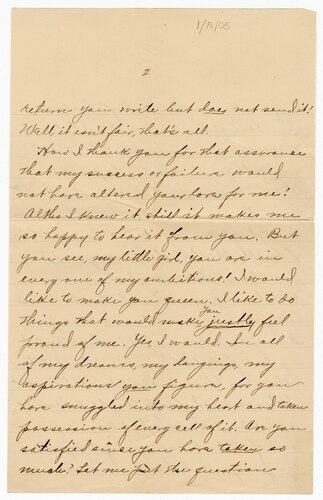 1/15/05
2
return you write but does not send it!
Well, it isn't fair, that's all.
How I thank you for that assurance
that my success or failure would
not have altered your love for me!
Altho I knew it, still it makes me
so happy to hear it from you. But
you see, my little girl, you are in
every one of my ambitions! I would
like to make you queen. I like to do
you
things that would make justly feel
proud of me. Yes, I would. In all
of my dreams, my longings, my
aspirations you figure, for you
have snuggled into my heat and taken
possession of every sell of it. Are you
satisfied since you have taken so
much? Let me put the question